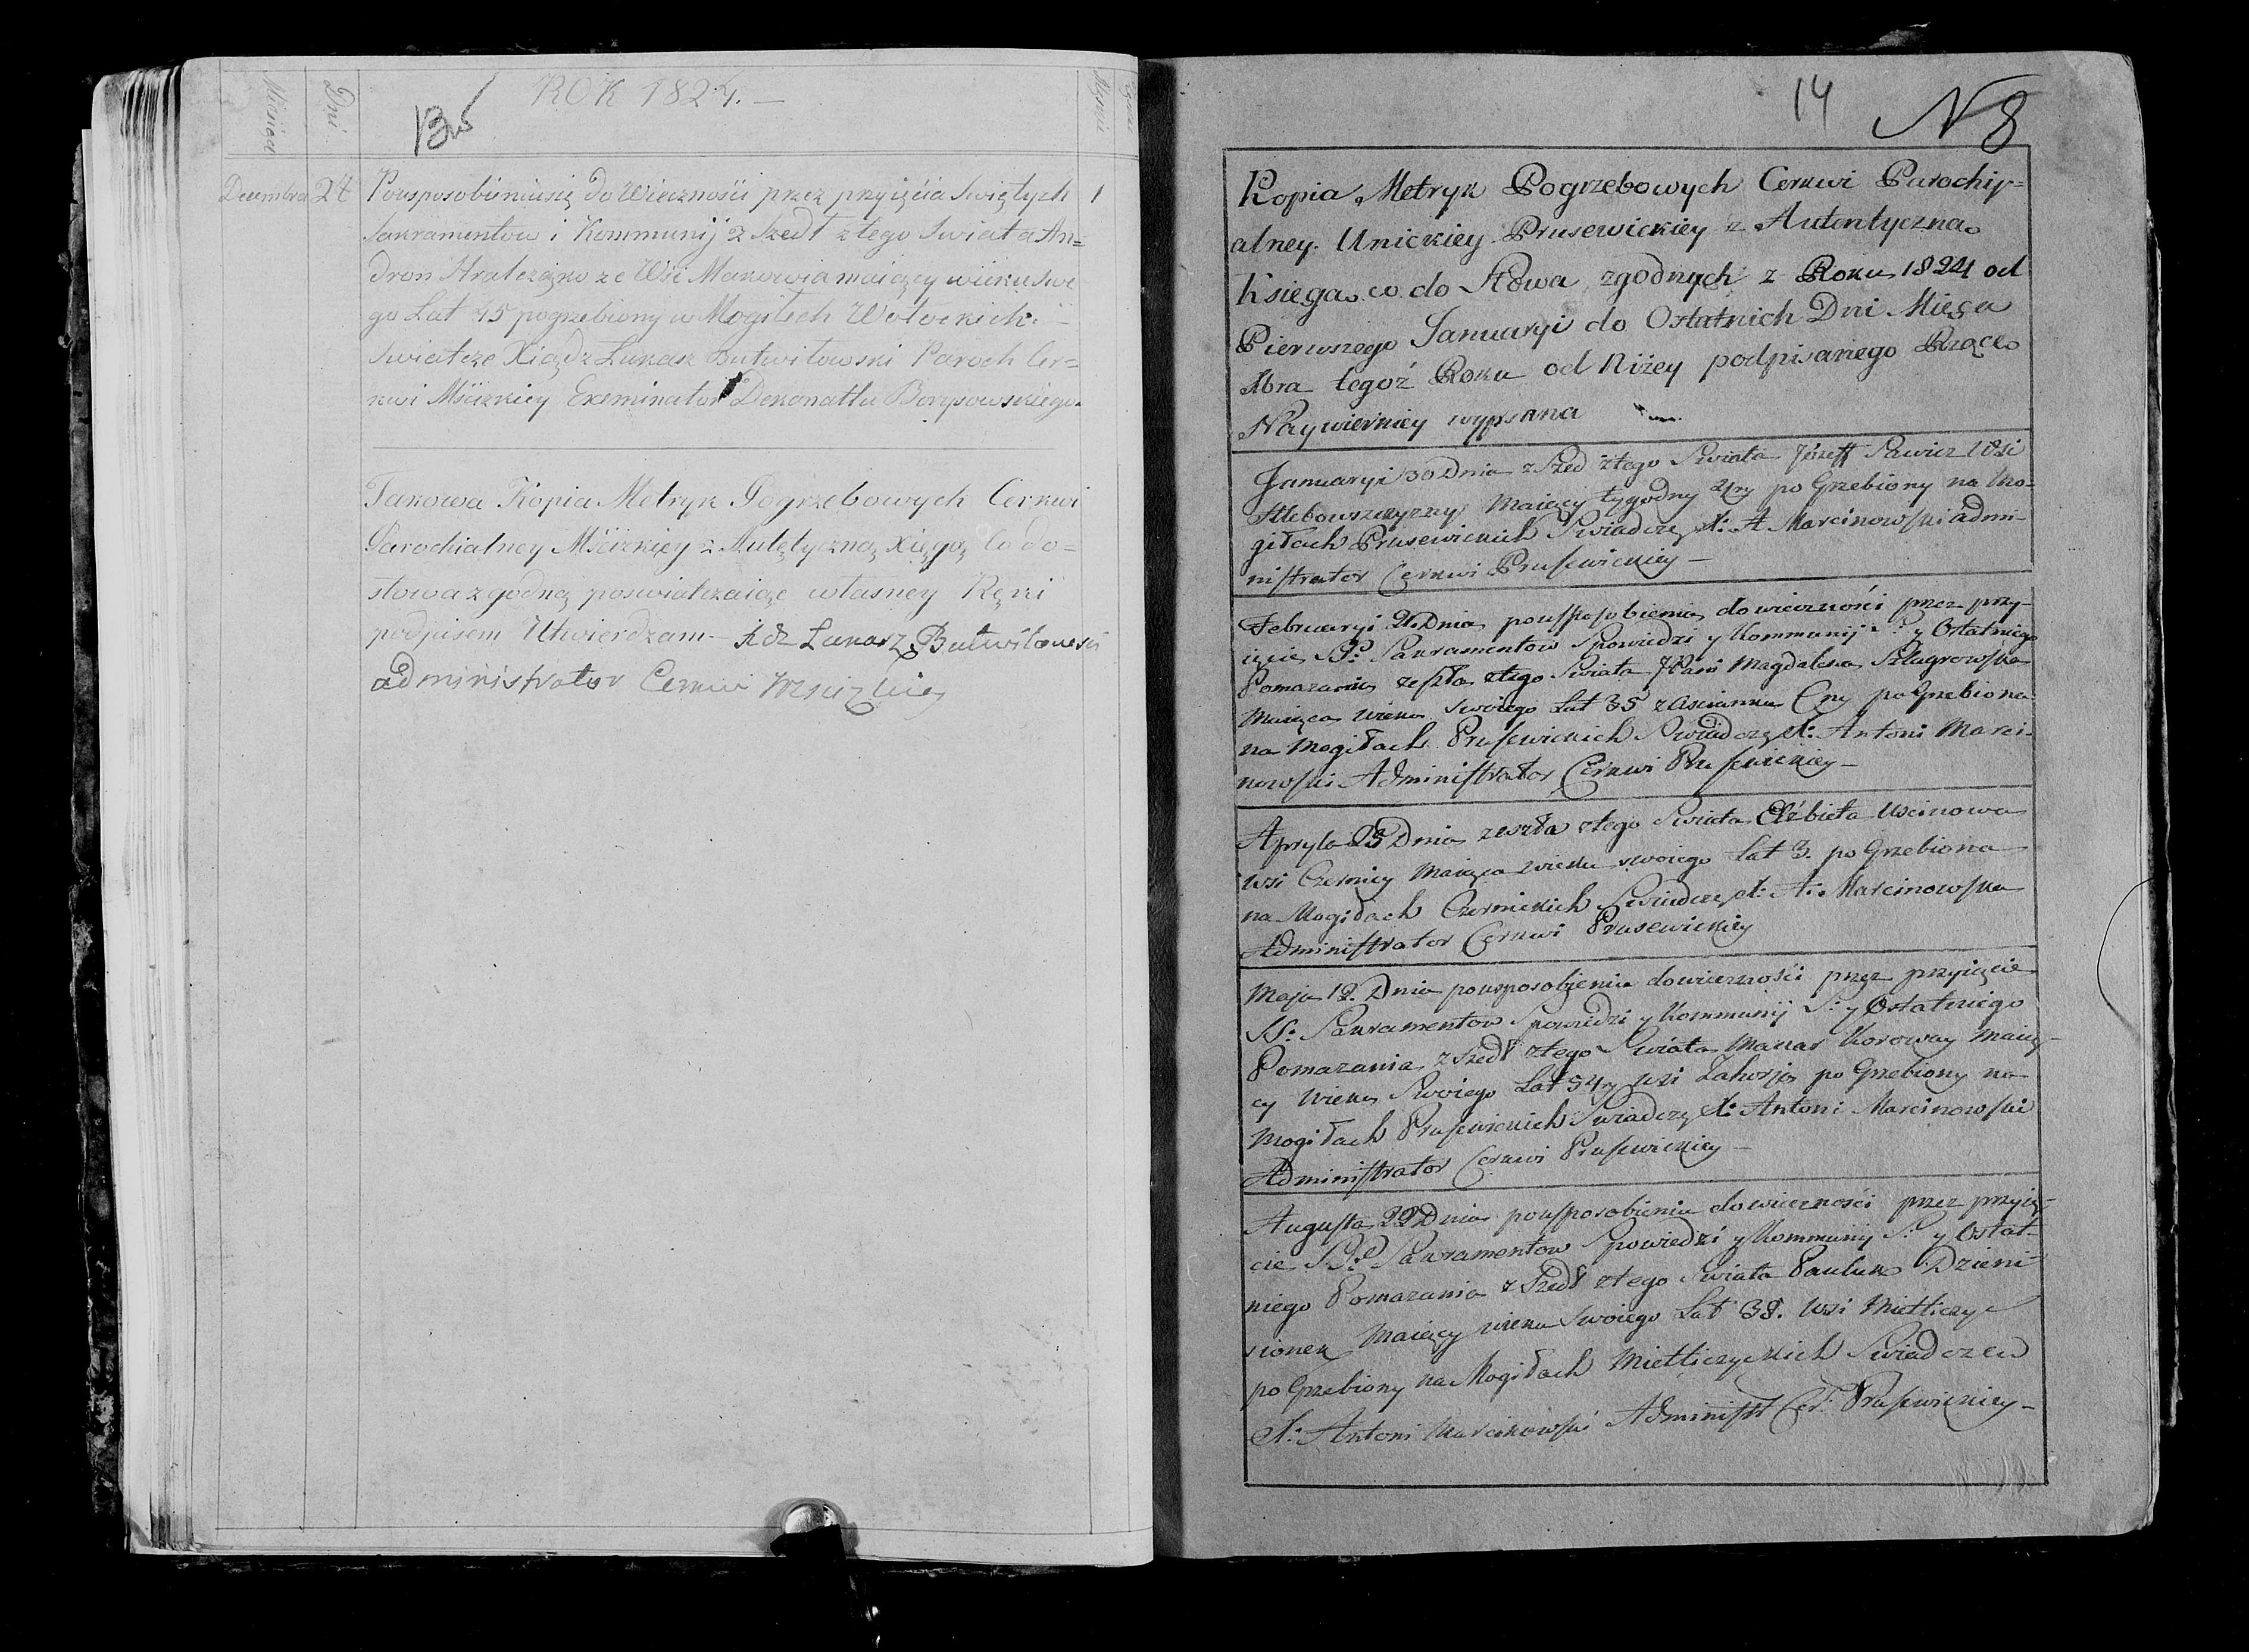 Miesiąca
Dni
ROK 1824.
13v
Decembra 24 Pousposobieniusię do Wiecznosii przez przyięcia Swiętych 1
Sakramentow i Kommunij z Szedł ztego Swiata An=
dron Hralczajko ze Wsi Makowia maiący wieku Swe
go Lat 45 pogrzebiony w Mogiłech Wołockich. –
Swiatcze Xiądz Łukasz Butwiłowski Paroch Cer=
kwi Mścizkiey Exeminator Dekonattu Borysowskiego.
Takowa Kopia Metryk Pogrzebowych Cerkwi
Parochialney Mścizkiey z Autętyczną Xięgą Co do=
słowa zgodną poswiatczaiąc własney Ręki
podpisem Utwierdzam – Xdz Łukasz Butwiłowski
administrator Cerkwi Mscizkiey
14
N 8
Kopia Metryk Pogrzebowych Cerkwi Parochij=
alney Unickiey Prusewickiey z Autentyczna
Ksiega co do Słowa zgodnych z Roku 1824 od
Pierwszego Januaryi do Ostatnich Dni Mięsa
Xbra tegoż Roku od Niżey podpisanego Rąk
Naywierniey wypisana
Januaryi 30 Dnia z Szed ztego Swiata Józeff Sawicz Wsi
Maiący tygodny 4ry po Grzebiony na Mo-
giłach Prusewickich Swiadczę X: A Marcinowski admi-
nistrator Cerkwi Prusewickiey –
Februaryi 21 Dnia pousposobieniu do wieczności przez przy-
ięcie SS: Sakramentow Spowiedzi y Kommunij S: y Ostatniego
Pomazania zeszła ztego Swiata JPani Magdalena
Maiąca wieku swoiego Lat 35 z Ascianku po Grzebiona
na Mogiłach Prusewickich Swiadczę X: Antoni Marci-
nowski Administrator Cerkwi Prusewickiey –
Apryla 25 Dnia zeszła ztego Swiata Elżbieta Uscinowa
wsi Czernicy Maiąca wieku swoiego Lat 3. po Grzebiona
na Mogiłach Czernickich Swiadczę X: A. Marcinowski
Administrator Cerkwi Prusewickiey
Maja 12. Dnia pousposobieniu do wiecznośći przez przyięcie
SS: Sakramentow Spowiedzi y Kommunij S: y Ostatniego
Pomazania z Szedł ztego Swiata Makar Koroway Maią-
cy wieku Swoiego Lat 54ry wsi po Grzebiony na
Mogiłach Prusewickich Swiadczę X: Antoni Marcinowski
Administrator Cerkwi Prusewickiey –
Augusta 22 Dnia pousposobieniu do wiecznośći przez przyię-
cie SS: Sakramentow Spowiedzi y Kommunij S: y Ostat-
niego Pomazania z Szedł ztego Swiata Pauluk Dzieni-
sionek Maiący wieku Swoiego Lat 38. wsi Mietliczyc
po Grzebiony na Mogiłach Mietliczyckich Swiadczę
X: Antoni Marcinowski Administ Cer: Prusewickiey –